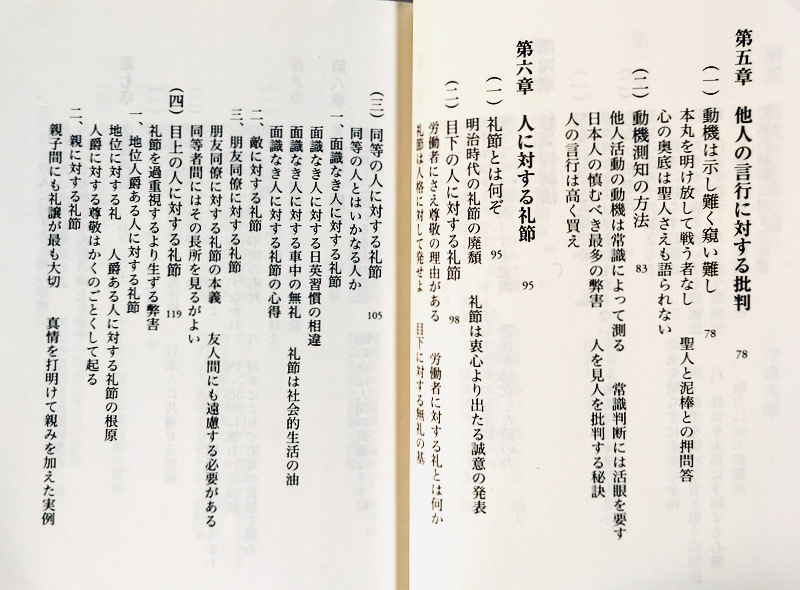 第五章 他人の言行に対する批判 78
(一) 動機は示し難く窺い難し 78
本丸を明け放して戦う者なし 聖人と泥棒との押問答
心の奥底は聖人さえも語られない
(二) 動機測知の方法 83
他人活動の動機は常識によって測る 常識判断には活眼を要す
日本人の慎むべき最多の弊害 人を見人を批判する秘訣
人の言行は高く買え
第六章 人に対する礼節 95
(一) 礼節とは何ぞ 95
明治時代の礼節の廃頽 礼節は衷心より出たる誠意の発表
(二) 目下の人に対する礼節 98
労働者にさえ尊敬の理由がある 労働者に対する礼とは何か
礼節は人格に対して発せよ 目下に対する無礼の基
(三) 同等の人に対する礼節 105
同等の人とはいかなる人か
一、面識なき人に対する礼節
面識なき人に対する日英習慣の相違
面識なき人に対する車中の無礼 礼節は社会的生活の油
面識なき人に対する礼節の心得
二、敵に対する礼節
三、朋友同僚に対する礼節
朋友同僚に対する礼節の本義 友人間にも遠慮する必要がある
同等者間にはその長所を見るがよい
(四) 目上の人に対する礼節 119
礼節を過重視するより生ずる弊害
一、地位人爵ある人に対する礼節
地位に対する礼 人爵ある人に対する礼節の根原
人爵に対する尊敬はかくのごとくして起る
二、親に対する礼節
親子間にも礼譲が最も大切 真情を打明けて親みを加えた実例